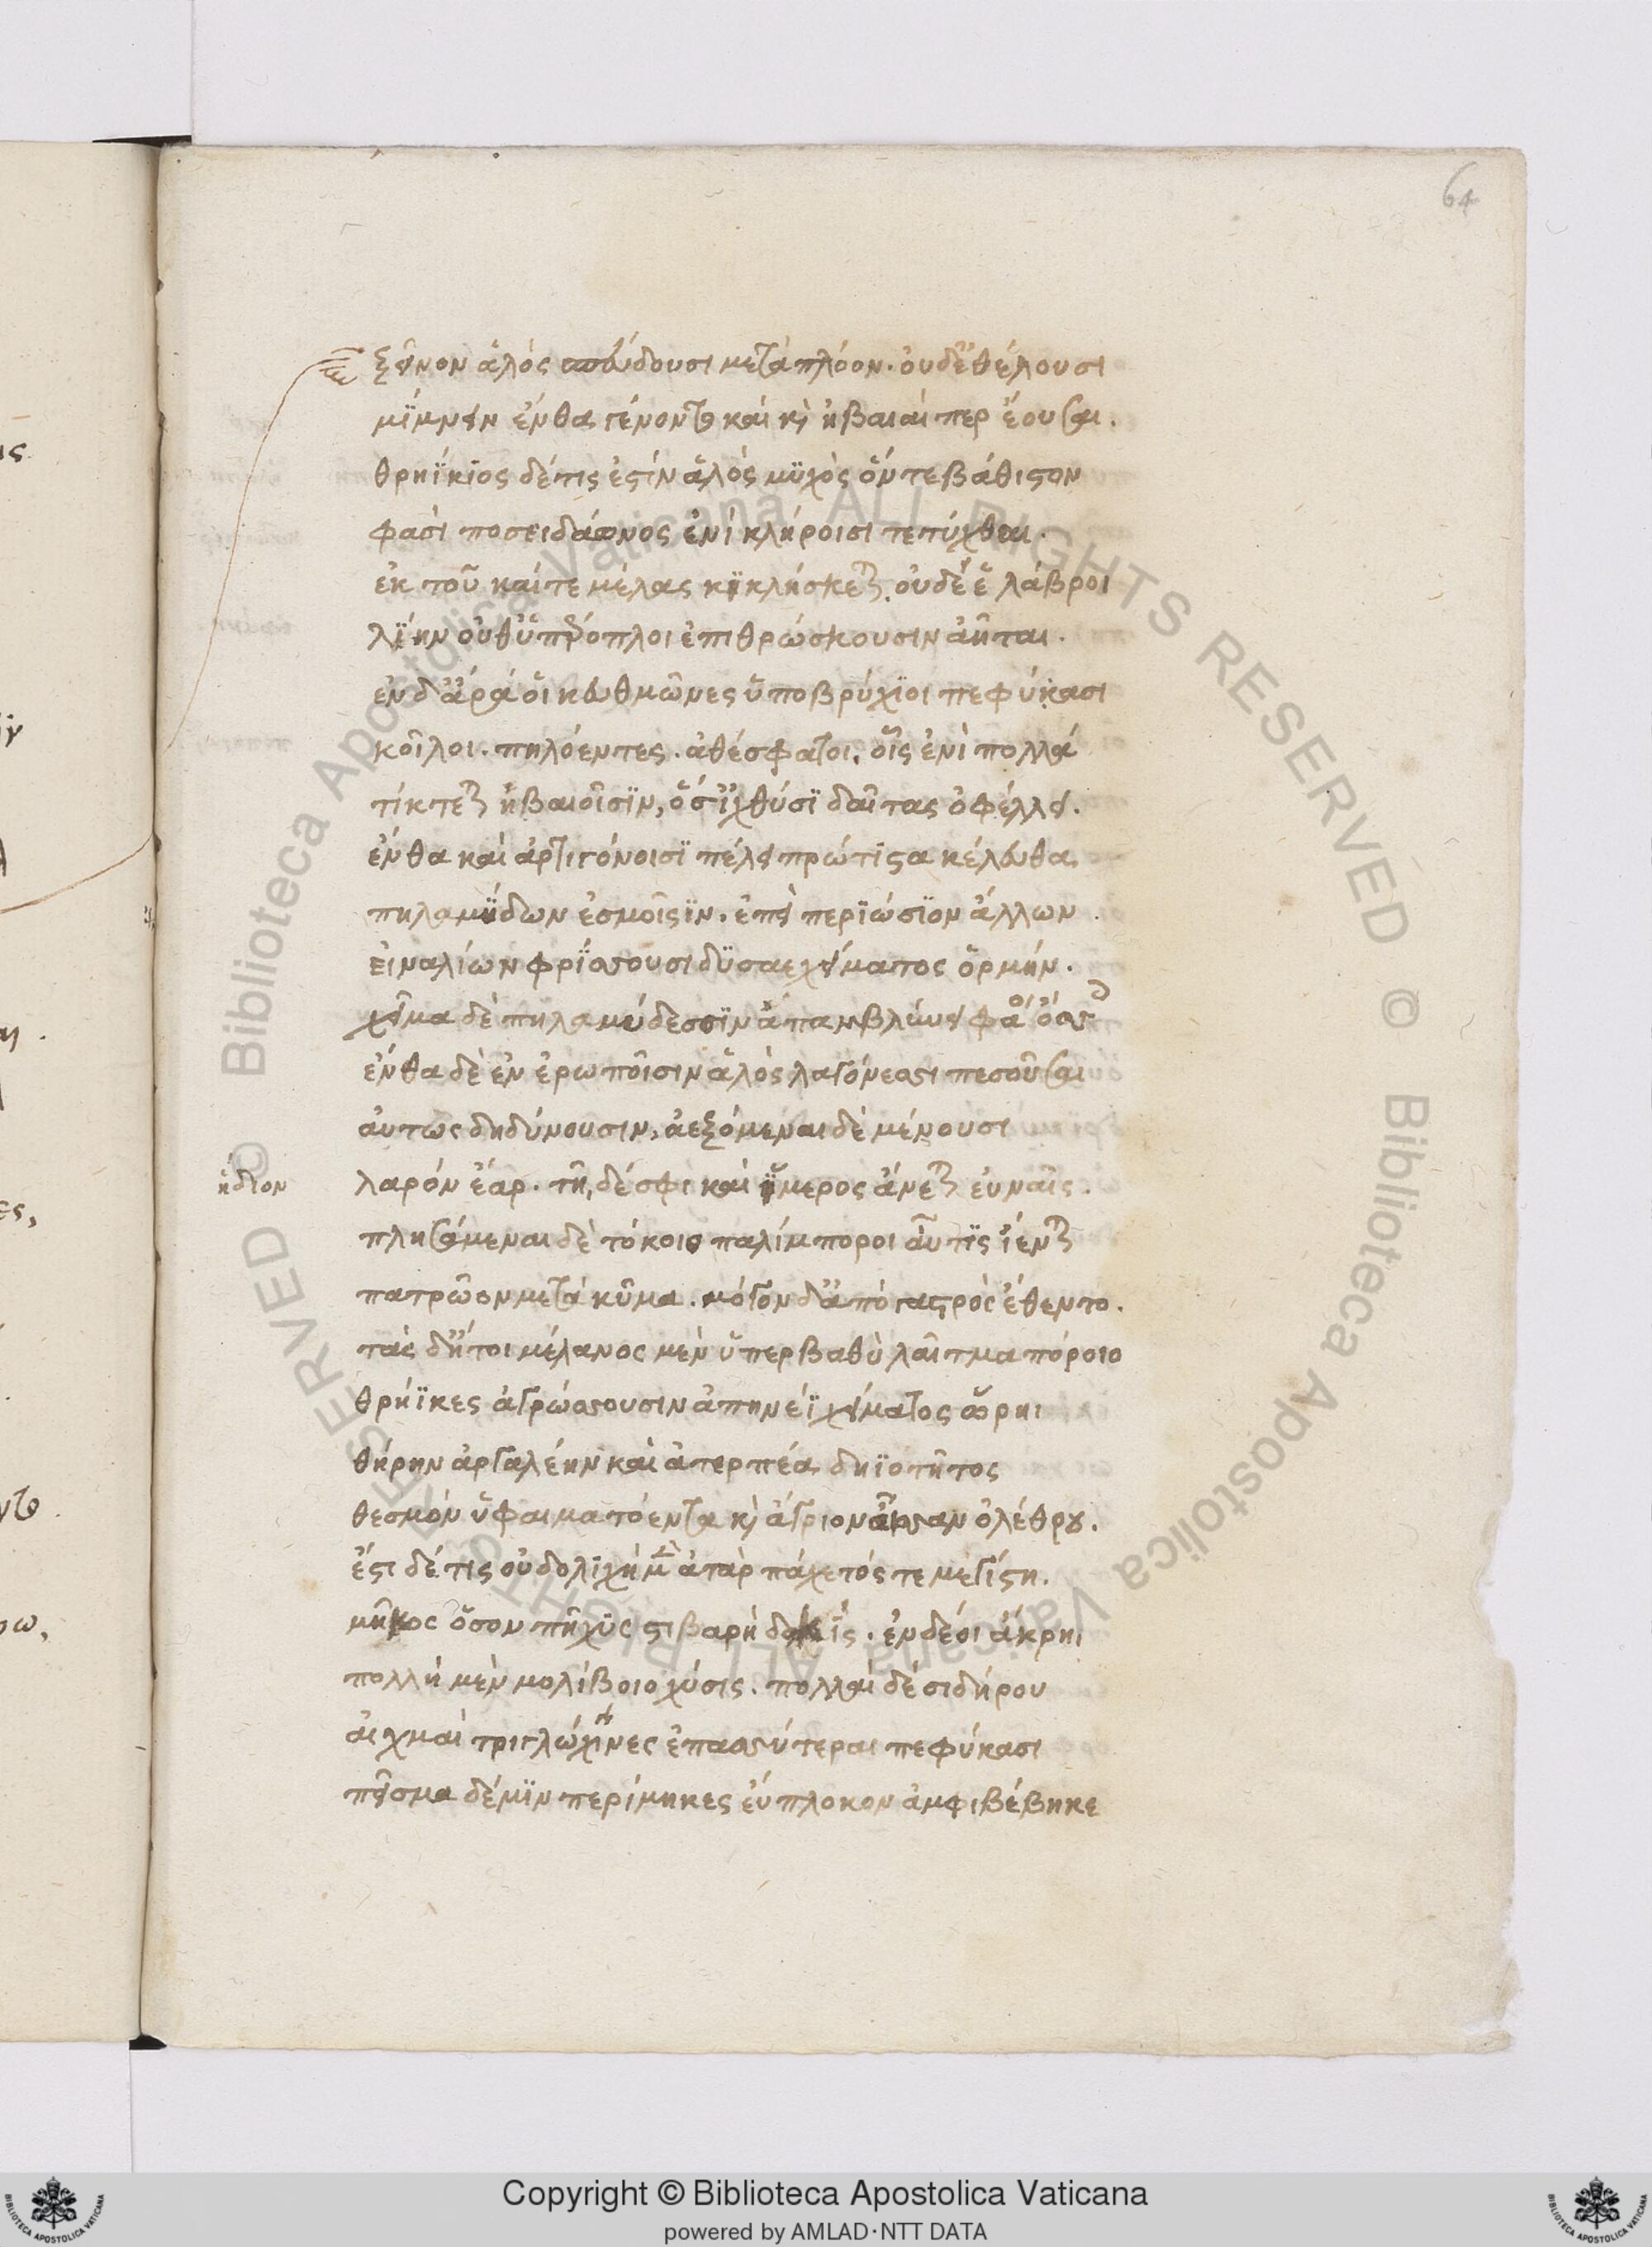 64
ξεῖνον ἁλὸς σπεύδουσι μετὰ πλόον. οὐδ' ἐθέλουσι
μΐμνειν ἔνθα γένοντο καὶ κὶ ἠβαιαί περ ἐοῦσαι.
θρηΐκΐος δέ τις ἐστὶν ἁλὸς μϋχὸς ὅν τε βάθιστον
φασὶ ποσειδάωνος ἐνὶ κλήροισι τετύχθαι.
ἐκ τοῦ καί τε μέλας κϊκλήσκεται. οὐδέ ἑ λάβροι
λΐην οὐθ' ὑπέροπλοι ἐπιθρώσκουσιν ἀῆται.
ἐν δ' ἄρα οἱ κευθμῶνες ὑποβρύχϊοι πεφύκασι
κοῖλοι. πηλόεντες. ἀθέσφατοι. οἷς ἐνὶ πολλὰ
τίκτεται ἠβαιοῖσϊν, ὅσ' ἰχθύσϊ δαῖτας ὀφέλλει.
ἔνθα καὶ ἀρτιγόνοισϊ πέλει πρώτϊστα κέλευθα
πηλαμΰδων ἑσμοῖσϊν. ἐπεὶ περϊώσϊον ἄλλων
εἰναλίων φρίσσουσι δϋσαὲ χείματος ὁρμήν.
χεῖμα δὲ πηλαμύδεσσϊν ἀπαμβλύνει φάος ὄσσων
ἔνθα δὲ ἐν ἐρωποῖσιν ἁλὸς λαγόνεσσι πεσοῦσαι
αὔτως δηδύνουσιν, ἀεξόμεναι δὲ μένουσι
ἥδιον
λαρὸν ἔαρ. τῇ, δέ σφι καὶ ἵμερος ἄνεται εὐναῖς.
πλησάμεναι δὲ τόκοιο παλίμποροι αὖτϊς ἵενται
πατρῷον μετὰ κῦμα. μόγον δ' ἀπὸ γαστρὸς ἔθεντο.
τὰς δή τοι μέλανος μὲν ὑπὲρ βαθὺ λαῖτμα πόροιο
θρήϊκες ἀγρώσσουσιν ἀπηνέϊ χείματος ὥρηι
θήρην ἀργαλέην καὶ ἀτερπέα δηϊοτῆτος
θεσμὸν ὕφ' αἱματόεντα κὶ ἄγριον αἶσαν ὀλέθρου.
ἔστι δέ τις οὐ δολϊχὴ μὲν ἀτὰρ πάχετός τε μεγίστη.
μῆκος ὅσον πῆχϋς στιβαρὴ δοκΐς. ἐν δέ οἱ ἄκρηι
πολλὴ μὲν μολίβοιο χύσις. πολλαὶ δὲ σιδήρου
αἰχμαὶ τριγλώχινες ἐπασσύτεραι πεφύκασι
πεῖσμα δέ μϊν περίμηκες ἐΰπλοκον ἀμφιβέβηκε
Copyright © Biblioteca Apostolica Vaticana
powered by AMLAD·NTT DATA